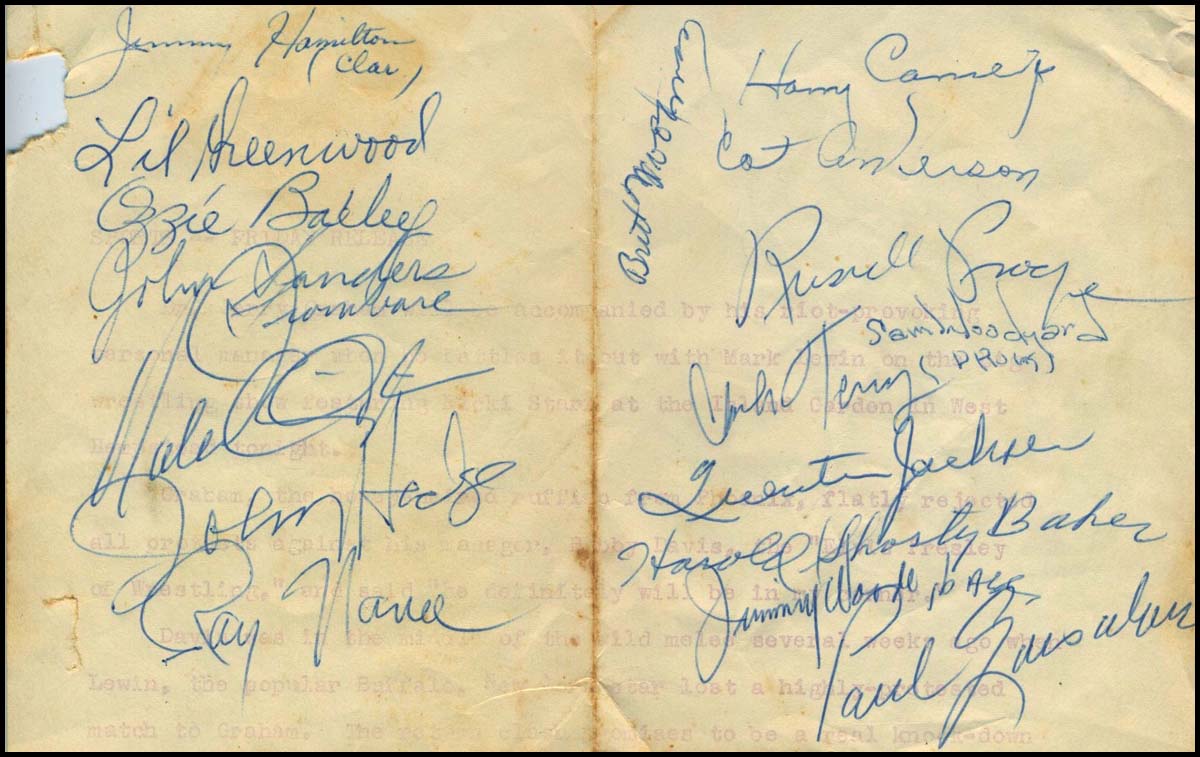 Jimmy Hamilton
(Clar.)
Lil Greenwood
Ozzie Bailey
John Sanders
Trombone
John
Ray Nance
Britt Woodman
Harry Carney
Cat Anderson
Russell
Sam Woodyard
(DRUMS)
Clark Terry
Quentin Jackson
Harold Ghosty Baker
Jimmy Woode, BASS
Paul Gonsalves
FRIDAY RELEASE
accompanied by his riot-provoking
personal manager when battles it out with Mark Lewin on the
wrestling show featuring at the Island Garden in West
tonight.
Graham, the ruffian from Phoenix, flatly rejected
all against his manager, Davis, the Presley
of Wrestling," and said "he definitely will be in my corner."
Davis was in the middle of the wild melee several weeks ago when
Lewin, the popular Buffalo, star lost a highly-protested
match to Graham. The promises to be a real knock-down